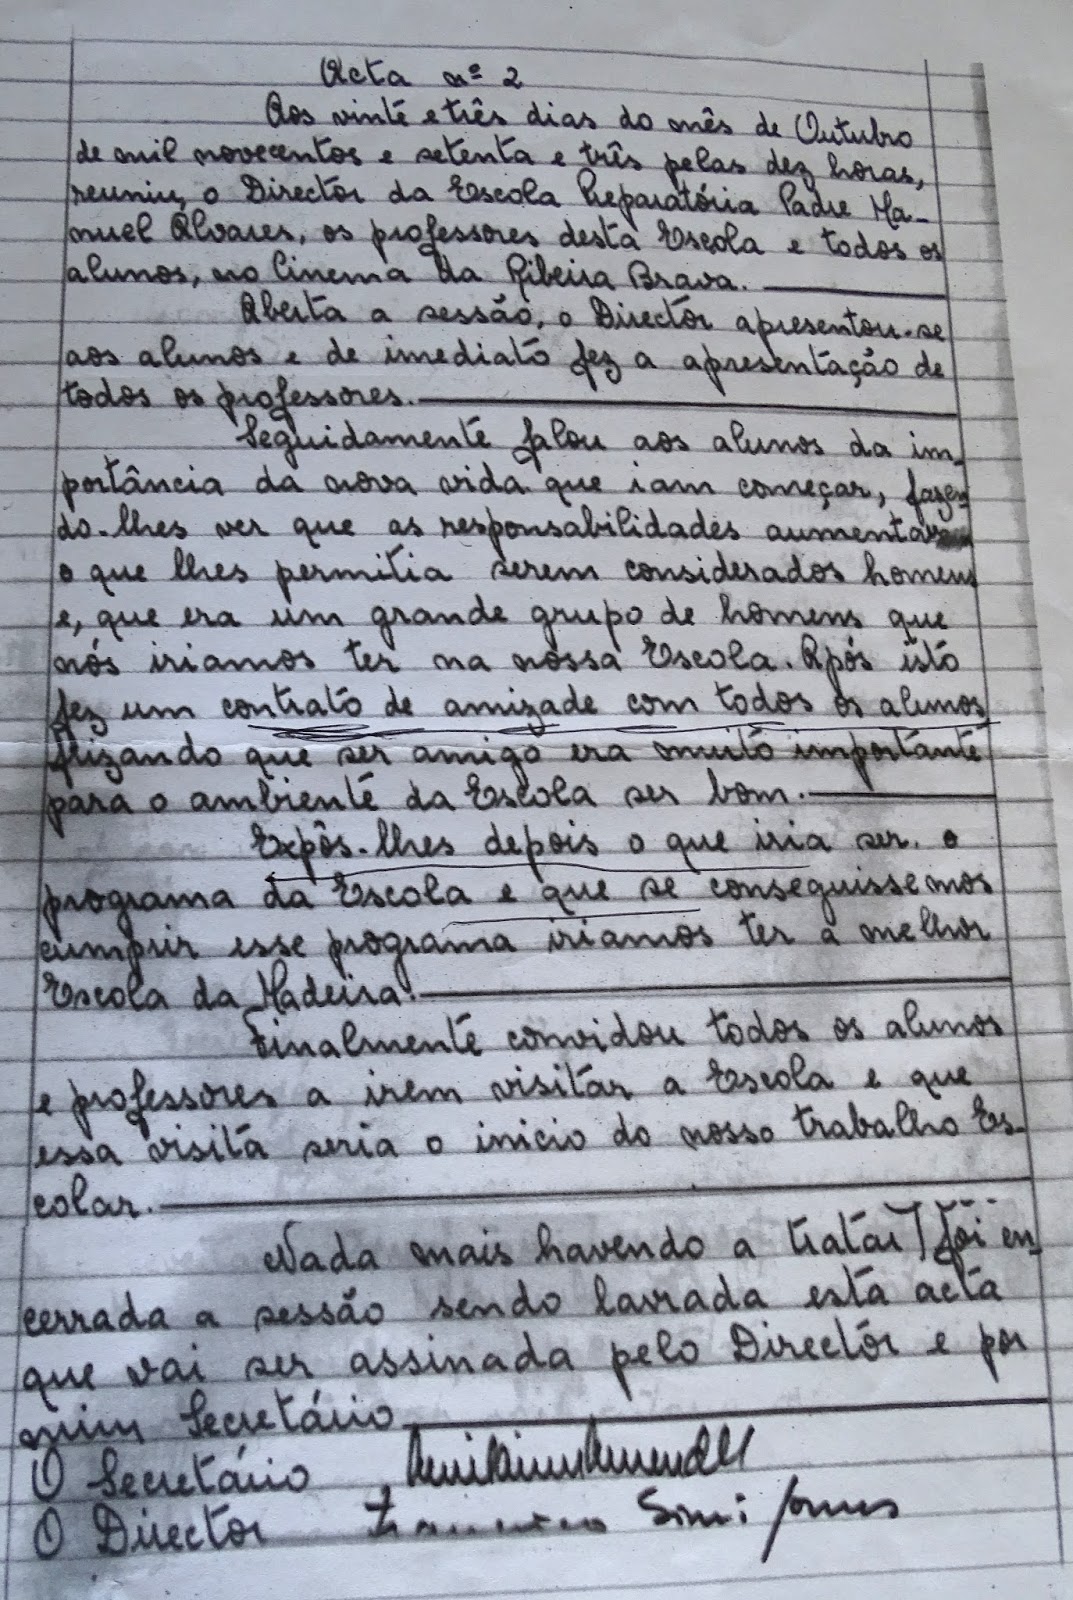 Acta nº 2
Aos vinte e três dias do mês de Outubro
de mil novecentos e setenta e três pelas dez horas,
reuniu, o Director da Escola Preparatória Padre Ma-
nuel Álvares, os professores desta Escola e todos os
alunos, no Cinema da Ribeira Brava.
Aberta a sessão, o Director apresentou-se
aos alunos e de imediato fez a apresentação de
todos os professores.
Seguidamente falou aos alunos da im-
portância da nova vida que iam começar, fazen-
do-lhes ver que as responsabilidades
o que lhes permitia serem considerados homens
e, que era um grande grupo de homens que
nós iriamos ter na nossa Escola. Após isto
fez um contrato de amizade com todos os alunos
frizando que ser amigo era muito importante
para o ambiente da Escola ser bom.
Expôs-lhes depois o que iria ser o
programa da Escola e que se conseguissemos
cumprir esse programa iriamos ter a melhor
Escola da Madeira.
Finalmente convidou todos os alunos
e professores a irem visitar a Escola e que
essa visita seria o inicio do nosso trabalho Es-
colar.
Nada mais havendo a tratar, foi en-
cerrada a sessão sendo lavrada esta acta
que vai ser assinada pelo Director e por
mim Secretário
O Secretário
O Director